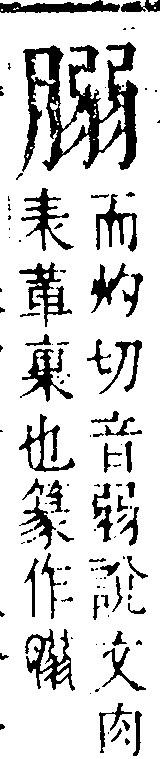 䐞
而灼切音弱說文肉
表革裏也篆作